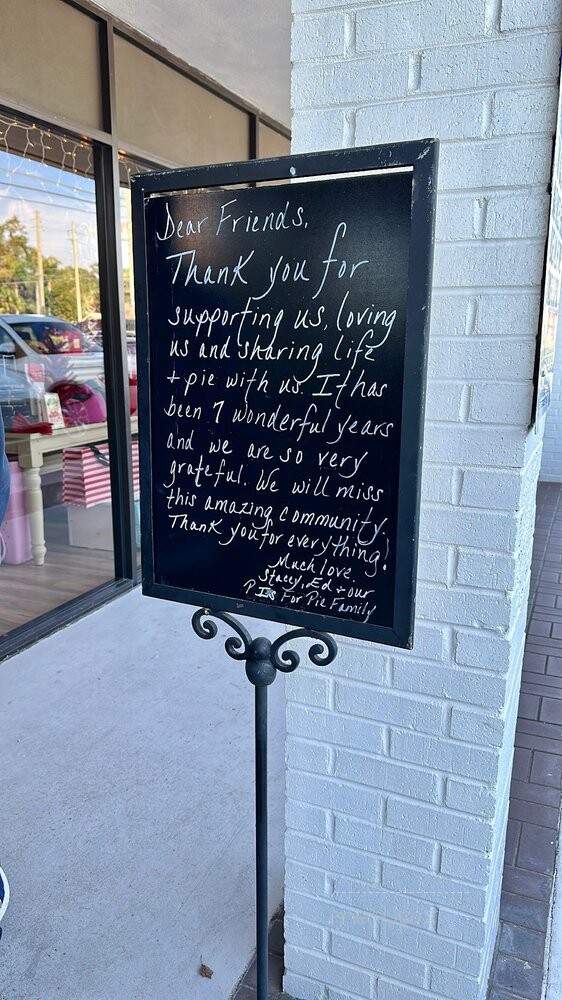 Dear Friends,
Thank you for
supporting us, loving
us and sharing life
+ pie with us. It has
been 7 wonderful years
and we are so very
grateful. We will miss
this amazing community.
Thank you for everything!
Much love,
Stacey, Ed + our
P. Is For Pie Family